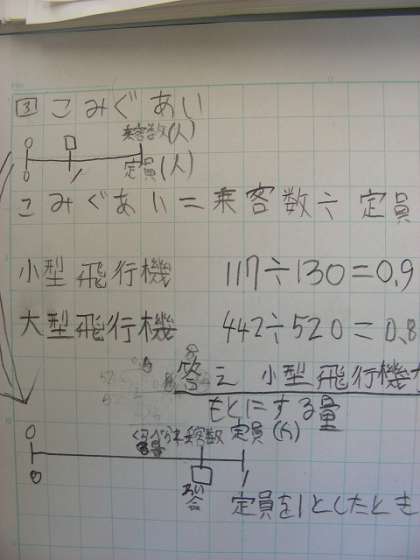 ③ こみぐあい
0 □ 乗客数(人)
0 1 定員(人)
こみぐあい=乗客数÷定員
小型飛行機 117÷130=0.9
大型飛行機 442÷520=0.8
答え 小型飛行機
もとにする量
0 乗客数 定員(人)
0 □ 1
合
定員を1としたとき